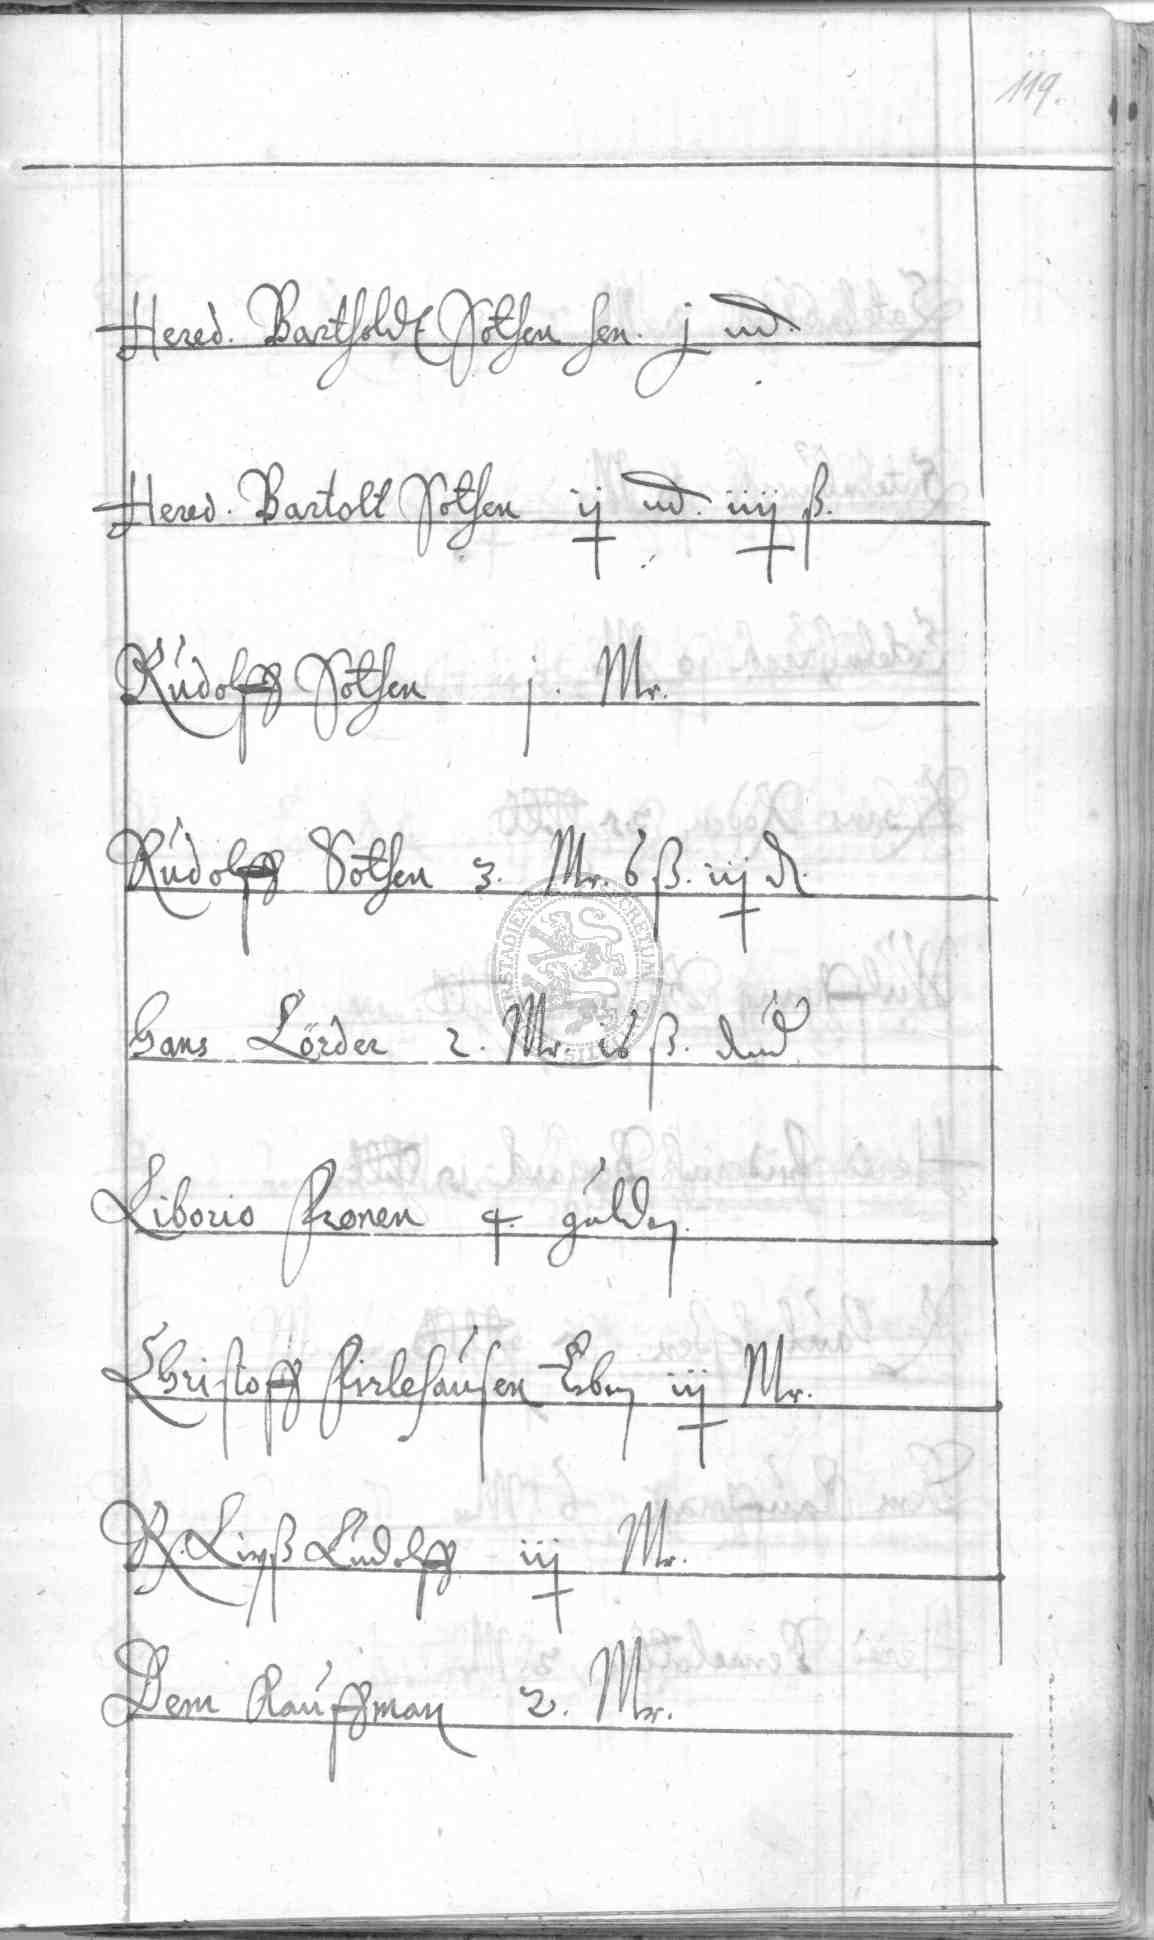 119.
Hered. Bartholdt Sothen sen. j md.
Hered. Bartolt Sothen ij md. iiij ß.
Rúdolff Sothen j. Mr.
Rúdolff Sothen 3. Mr. 6 ß. iij d.
Hans Lörder 2. Mr. ß.
Liborio Kronen 4. gúlden.
Christoff Kirlehaúsen Erben iij Mr.
Lúdolff iij Mr.
Dem Kaúffman 2. Mr.